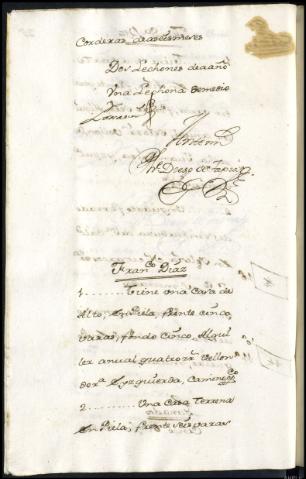 Corderas de a seis meses
Dos Lechones de a año
Una Lechona de medio
Antemi
Diego de
Fran.co Diaz
1........ Tiene una Casa de
Alto, frente cinco
varas, fondo cinco, Alqui
ler anual quatro rr. vellon
dra. Ezquierda, Camino
2........ Una Casa Terrena
En Piela, frente seis varas